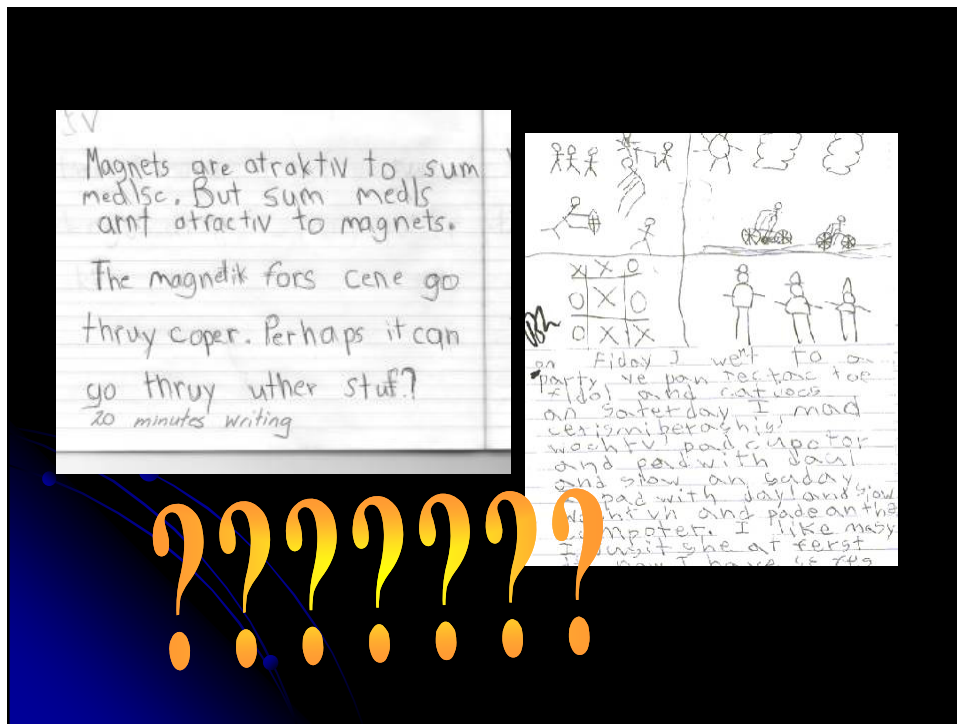 Magnets are atraktiv to sum
medlsc. But sum medls
arnt atractiv to magnets.
The magnetik fors cene go
thruy coper. Perhaps it can
go thruy uther stuf?
20 minutes writing
X X O
O X O
O X X
on Fiday I went to a
party we pan rectac toe
and
an saterday I mad
wochtv padcupotor
and padwith
and slow an
pad with dayl and slow
and padeantha
compoter. I like masy
she at ferst
now I have
???????